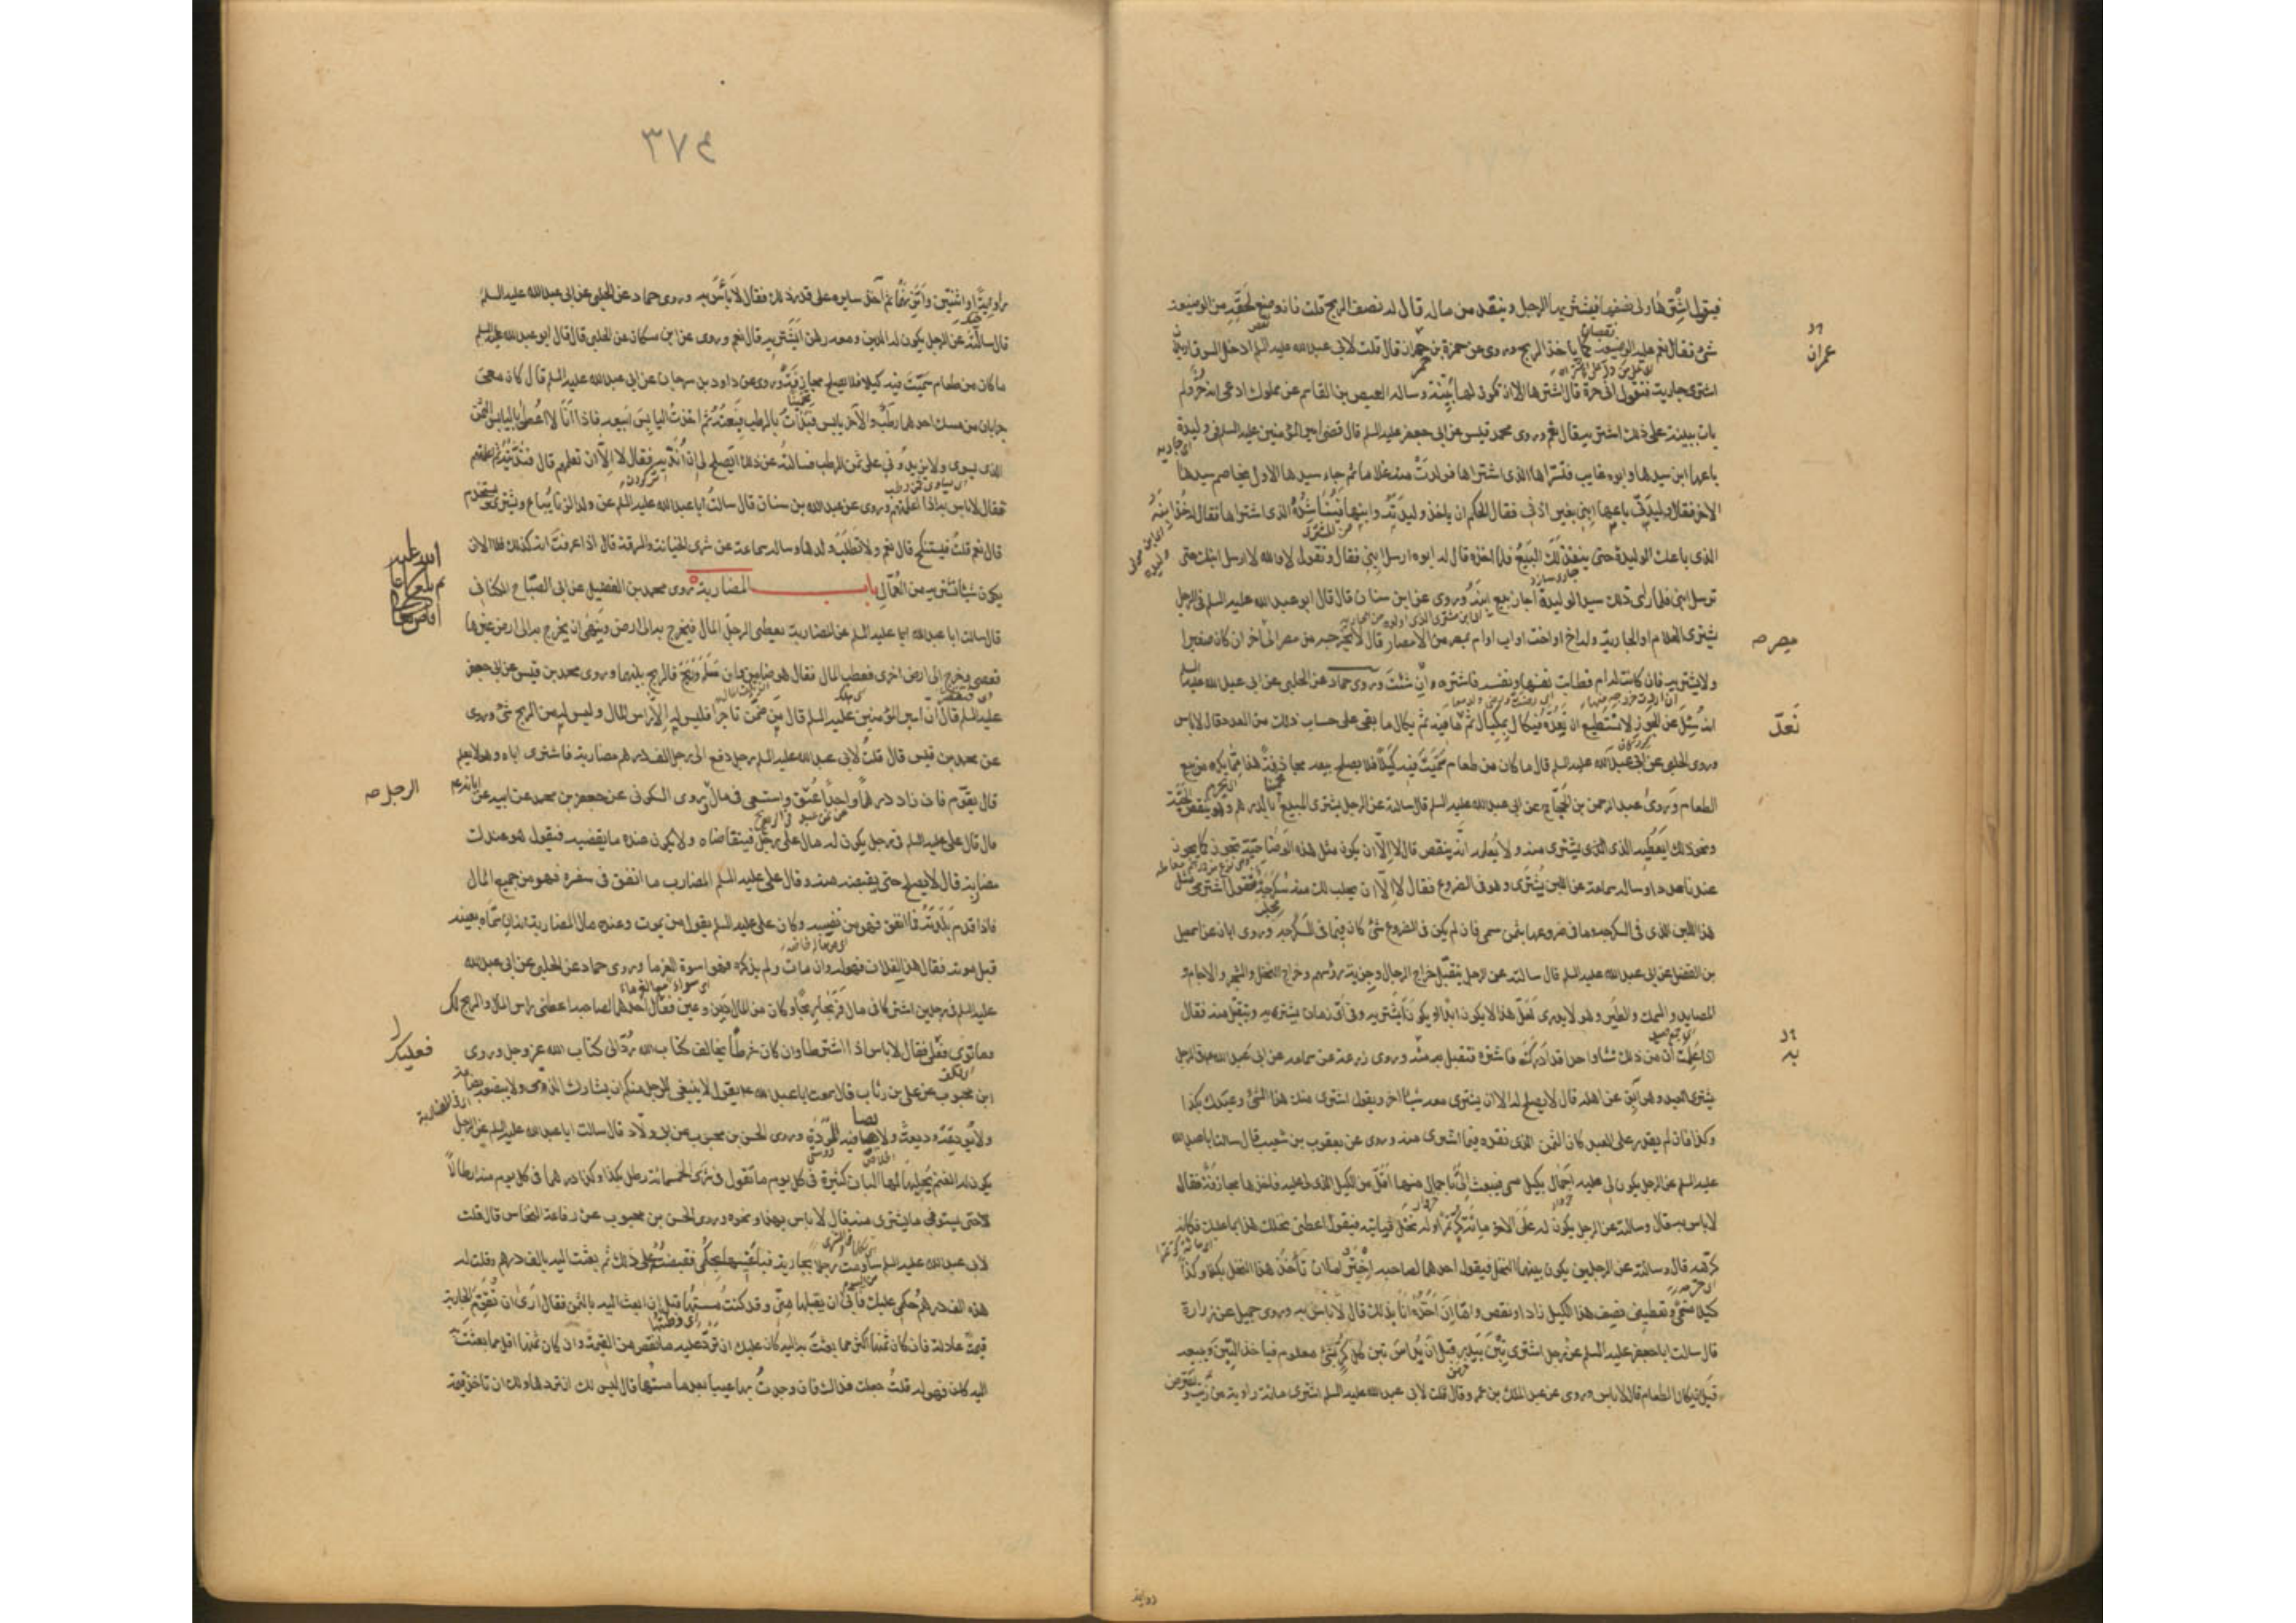 فيقول اشترها ولى نصفها فيشتريها الرجل وينقد من ماله قال له نصف الربح قلت فان وضع لحقه من الوضيعة
شئ فقال نعم عليه الوضيعة كما ياخذ الربح وروى عن حمزة بن حمران قال قلت لابى عبدالله عليه السلم ادخل السوق اريد
عمران
اشترى جارية فتقول انى حرة قال اشترها الا ان تكون لها بينة وساله العيص بن القاسم عن مملوك ادعى انه حر ولم
يات ببينة على ذلك اشتريه قال نعم وروى محمد قيس عن ابى جعفر عليه السلم قال قضى امير المؤمنين عليه السلم فى وليدة
باعها ابن سيدها وابوه غايب فتسراها الذى اشتراها فولدت منه غلاما ثم جاء سيدها الاول يخاصم سيدها
الاخر فقال وليدتى باعها ابنى بغير اذنى فقال الحكم ان ياخذ وليدته وابنها فيناشده الذى اشتراها فقال له خذ ابنه
الذى باعك الوليدة حتى ينفذ لك البيع فلما اخذه قال له ابوه ارسل ابنى فقال ونقول لا والله لا ارسل ابنك حتى
ترسل ابنى فلما راى ذلك سيد الوليدة اجاز بيع ابنه وروى عن ابن سنان قال قال ابو عبدالله عليه السلم فى الرجل
يشترى الغلام او الجارية وله اخ او اخت او اب او ام بمصر من الامصار قال لا يخرجه من مصر الى اخر ان كان صغيرا
مصر صه
ولا يشتريه فان كانت له ام فطابت نفسها ونفسه فاشتره ان شئت وروى حماد عن الحلبى عن ابى عبدالله عليه السلم
انه سئل عن الجوز لا نستطيع ان نعده فيكال بمكيال ثم يعد ما فيه ثم يكال ما بقى على حساب ذلك من العدد قال لا باس
نعد
وروى الحلبى عن ابى عبدالله عليه السلم قال ما كان من طعام سميت فيه كيلا فلا يصلح بيعه مجازفة هذا مما يكره من بيع
الطعام وروى عبد الرحمن بن الحجاج عن ابى عبدالله عليه السلم قال سالته عن الرجل يشترى المبيع بالدرهم وهو ينقص الحبة
ونحو ذلك ايعطيه الذى يشترى منه ولا يعلمه انه ينقص قال لا الا ان يكون مثل هذه الوضاحية تجوز كما يجوز
عندنا عددا وساله سماعة عن اللبن يشترى وهو فى الضروع فقال لا الا ان يحلب لك منه سكرجة فتقول اشترى مثل
هذا اللبن الذى فى السكرجة وما فى ضروعها بثمن مسمى فان لم يكن فى الضروع شئ كان فيما فى السكرجة وروى ابان عن اسمعيل
بن الفضل عن ابى عبدالله عليه السلم قال سالته عن الرجل يتقبل خراج الرجال وجزية رؤسهم وخراج النخل والشجر والاجام و
المصايد والسمك والطير وهو لا يدرى لعل هذا لا يكون ابدا او يكون ايشتريه وفى اى زمان يشتريه ويتقبل منه فقال
اذا علمت ان من ذلك شئا واحدا قد ادرك فاشتره وتقبل به منه وروى زرعة عن سماعة عن ابى عبدالله فى الرجل
يشترى العبد وهو ابق عن اهله قال لا يصلح له الا ان يشترى معه شيئا اخر ويقول اشترى منك هذا الشئ وعبدك بكذا
وكذا فان لم يقدر على العبد كان الثمن الذى نقده فيما اشترى منه وروى عن يعقوب بن شعيب قال سالت ابا عبدالله
عليه السلم عن الرجل يكون لى عليه احمال بكيل مسمى فيبعث الى باحمال منها اقل من الكيل الذى لى عليه فاخذها مجازفة فقال
لا باس به قال وسالته عن الرجل يكون له على الاخر مائة كر تمرا وله نخل فياتيه فيقول اعطنى نخلك هذا بما عليك فكانه
كرهه قال وسالته عن الرجلين يكون بينهما النخل فيقول احدهما لصاحبه اختر اما ان تاخذ هذا النخل بكذا وكذا
كيلا مسمى وتعطينى نصف هذا الكيل زاد او نقص واما ان اخذه انا بذلك قال لا باس به وروى جميل عن زرارة
قال سالت ابا جعفر عليه السلم عن رجل اشترى تبن بيدر قبل ان يداس تبن كل كر بشئ معلوم فياخذ التبن ويبيعه
قبل ان يكال الطعام قال لا باس وروى عن عبد الملك بن عمرو قال قلت لابى عبدالله عليه السلم اشترى مائة راوية من زيت و
٣٧٤
راوية او اثنتين واتزنهما ثم آخذ سايره على قدر ذلك فقال لا باس به وروى حماد عن الحلبى عن ابى عبدالله عليه السلم
قال سالته عن الرجل يكون له الدين ومعه رهن ايشتريه قال نعم وروى عن ابن مسكان عن الحلبى قال قال ابو عبدالله عليه السلم
ما كان من طعام سميت فيه كيلا فلا يصلح مجازفة وروى عن داود بن سرحان عن ابى عبدالله عليه السلم قال كان معى
جرابان من مسك احدهما رطب والآخر يابس فبدات بالرطب فبعته ثم اخذت اليابس ابيعه فاذا انا لا اعطى باليابس الثمن
الذى يسوى ولا يزيدونى على ثمن الرطب فسالته عن ذلك ايصلح لى ان انديه فقال لا الا ان تعلمهم قال فنديته ثم اعلمتهم
فقال لا باس به اذا اعلمتهم وروى عن عبدالله بن سنان قال سالت ابا عبدالله عليه السلم عن ولد الزنا يباع ويشترى ويستخدم
قال نعم قلت فيستنكح قال نعم ولا تطلب ولدها وساله سماعة عن شرى الخيانة والسرقة قال اذا عرفت انه كذلك فلا الا ان
يكون شيئا تشتريه من العمال باب المضاربة روى محمد بن الفضيل عن ابى الصباح الكنانى
قال سالت ابا عبدالله عليه السلم عن المضاربة يعطى الرجل المال فيخرج به الى ارض وينهى ان يخرج به الى ارض غيرها
فعصى فخرج الى ارض اخرى فعطب المال فقال هو ضامن وان سلم وربح فالربح بينهما وروى محمد بن قيس عن ابى جعفر
عليه السلم قال ان امير المؤمنين عليه السلم قال من ضمن تاجرا فليس له الا راس المال وليس له من الربح شئ وروى
عن محمد بن قيس قال قلت لابى عبدالله عليه السلم رجل دفع الى رجل الف درهم مضاربة فاشترى اباه وهو لا يعلم
قال يقوم فان زاد درهما واحدا عتق واستسعى فى مال الرجل وروى السكونى عن جعفر بن محمد عن ابيه عن ابائه ع
الرجل صه
قال قال على عليه السلم فى رجل يكون له مال على رجل فيتقاضاه ولا يكون عنده ما يقضيه فيقول هو عندك
مضاربة قال لا يصلح حتى يقبضه منه وقال على عليه السلم المضارب ما انفق فى سفره فهو من جميع المال
فاذا قدم بلدته فما انفق فهو من نصيبه وكان على عليه السلم يقول من يموت وعنده مال المضاربة انه ان سماه بعينه
قبل موته فقال هذا لفلان فهو له وان مات ولم يذكره فهو اسوة الغرما وروى حماد عن الحلبى عن ابى عبدالله
عليه السلم فى رجلين اشتركا فى مال فربحا ربحا وكان من المال دين وعين فقال احدهما لصاحبه اعطنى راس المال والربح لك
وما توى فعليك فقال لا باس اذا اشترطا وان كان شرطا يخالف كتاب الله رد الى كتاب الله عز وجل وروى
فعليك
ابن محبوب عن على بن رئاب قال سمعت ابا عبدالله يقول لا ينبغى للرجل منكم ان يشارك الذمى ولا يبضعه بضاعة
ولا يودعه وديعة ولا يصافيه المودة وروى الحسن بن محبوب عن ابى ولاد قال سالت ابا عبدالله عليه السلم عن الرجل
يكون له الغنم يحلبها لها البان كثيرة فى كل يوم ما تقول فى شرى الخمسمائة رطل بكذا وكذا درهما فى كل يوم منه ارطالا
حتى يستوفى ما يشترى منه قال لا باس بهذا ونحوه وروى الحسن بن محبوب عن رفاعة النخاس قال قلت
لابى عبدالله عليه السلم ساومت رجلا بجارية فباعنيها بحكمى فقبضتها على ذلك ثم بعثت اليه بالف درهم وقلت له
هذه الف درهم حكمى عليك فابى ان يقبلها منى وقد كنت مسستها قبل ان ابعث اليه بالثمن فقال ارى ان تقوم الجارية
قيمة عادلة فان كان ثمنها اكثر مما بعثت به اليه كان عليك ان ترد عليه ما نقص من القيمة وان كان ثمنها اقل مما بعثت
اليه كان فهو له قلت جعلت فداك فان وجدت بها عيبا بعد ما مسستها قال ليس لك ان تردها ولك ان تاخذ قيمة